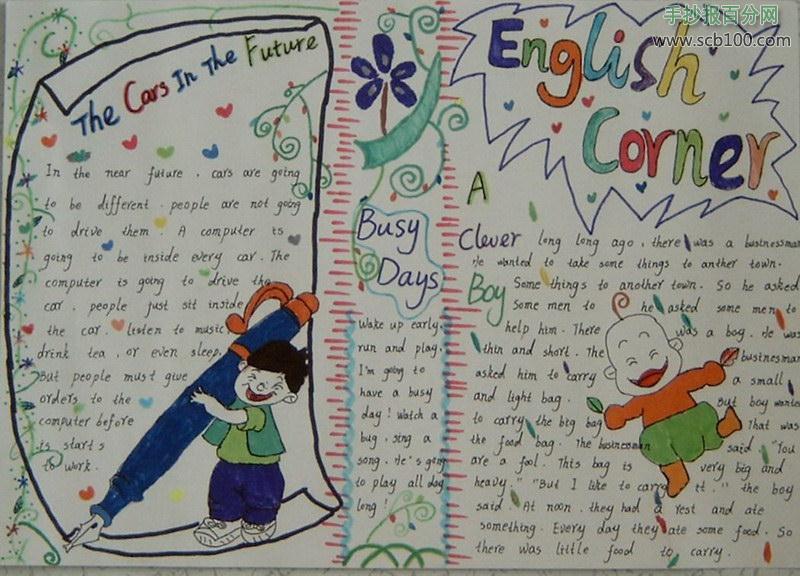 手抄报百分网
www.scb100.com
The Cars In The Future
In the near future , cars are going
to be different . people are not going
to drive them . A computer is
going to be inside every car . The
computer is going to drive the
car . people just sit inside
the car . listen to music
drink tea , or even sleep.
But people must give
orders to the
computer before
is starts
to work .
Busy
Days
Wake up early.
run and play.
I'm going to
have a busy
day ! Watch a
bug , sing a
song . He's going
to play all day
long !
English
Corner
A
Clever
Boy
long long ago , there was a businessman
He wanted to take some things to anther town.
Some things to another town. So he asked
Some men to he asked some men to
help him . There was a bog . He was
thin and short . The businessman
asked him to carry a small
and light bag . But boy wanted
to carry the big bag That was
the food bag . The businessman said . "You
are a fool . This bag is very big and
heavy ." "But I like to carry it ." the boy
said . At noon , they had a rest and ate
something . Every day they ate some food . So
there was little food to carry .